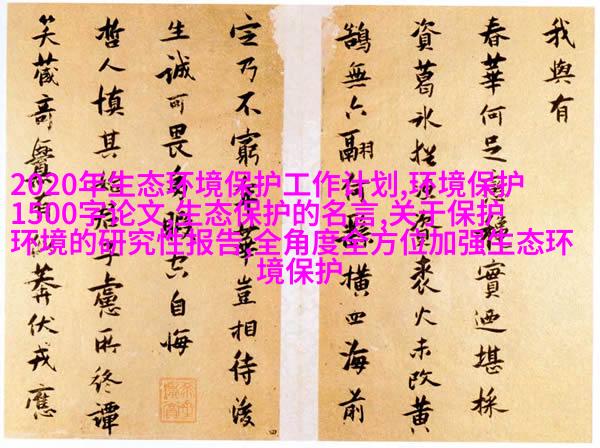 2020年生态环境保护工作计划,环境保护
1500字论文,生态保护的名言,关于保护
环境的研究性报告,全角度全方位加强生态环
境保护
我與有
春華何足實迺堪採
資葛資裘火未改黃
鵠無六翮何橫四海前
定乃不窮華豈相待後
生誠可畏自悔
哲人慎其始慮所終譚
笑藏竒釁有莽伏戎應
四